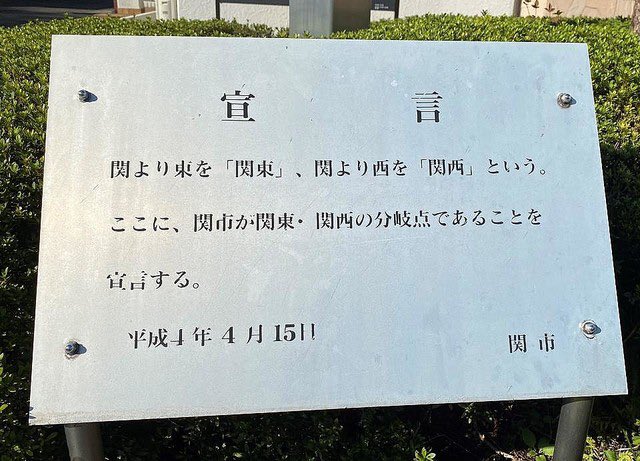 宣言
関より東を「関東」、関より西を「関西」という。
ここに、関市が関東・関西の分岐点であることを
宣言する。
平成4年4月15日 関市